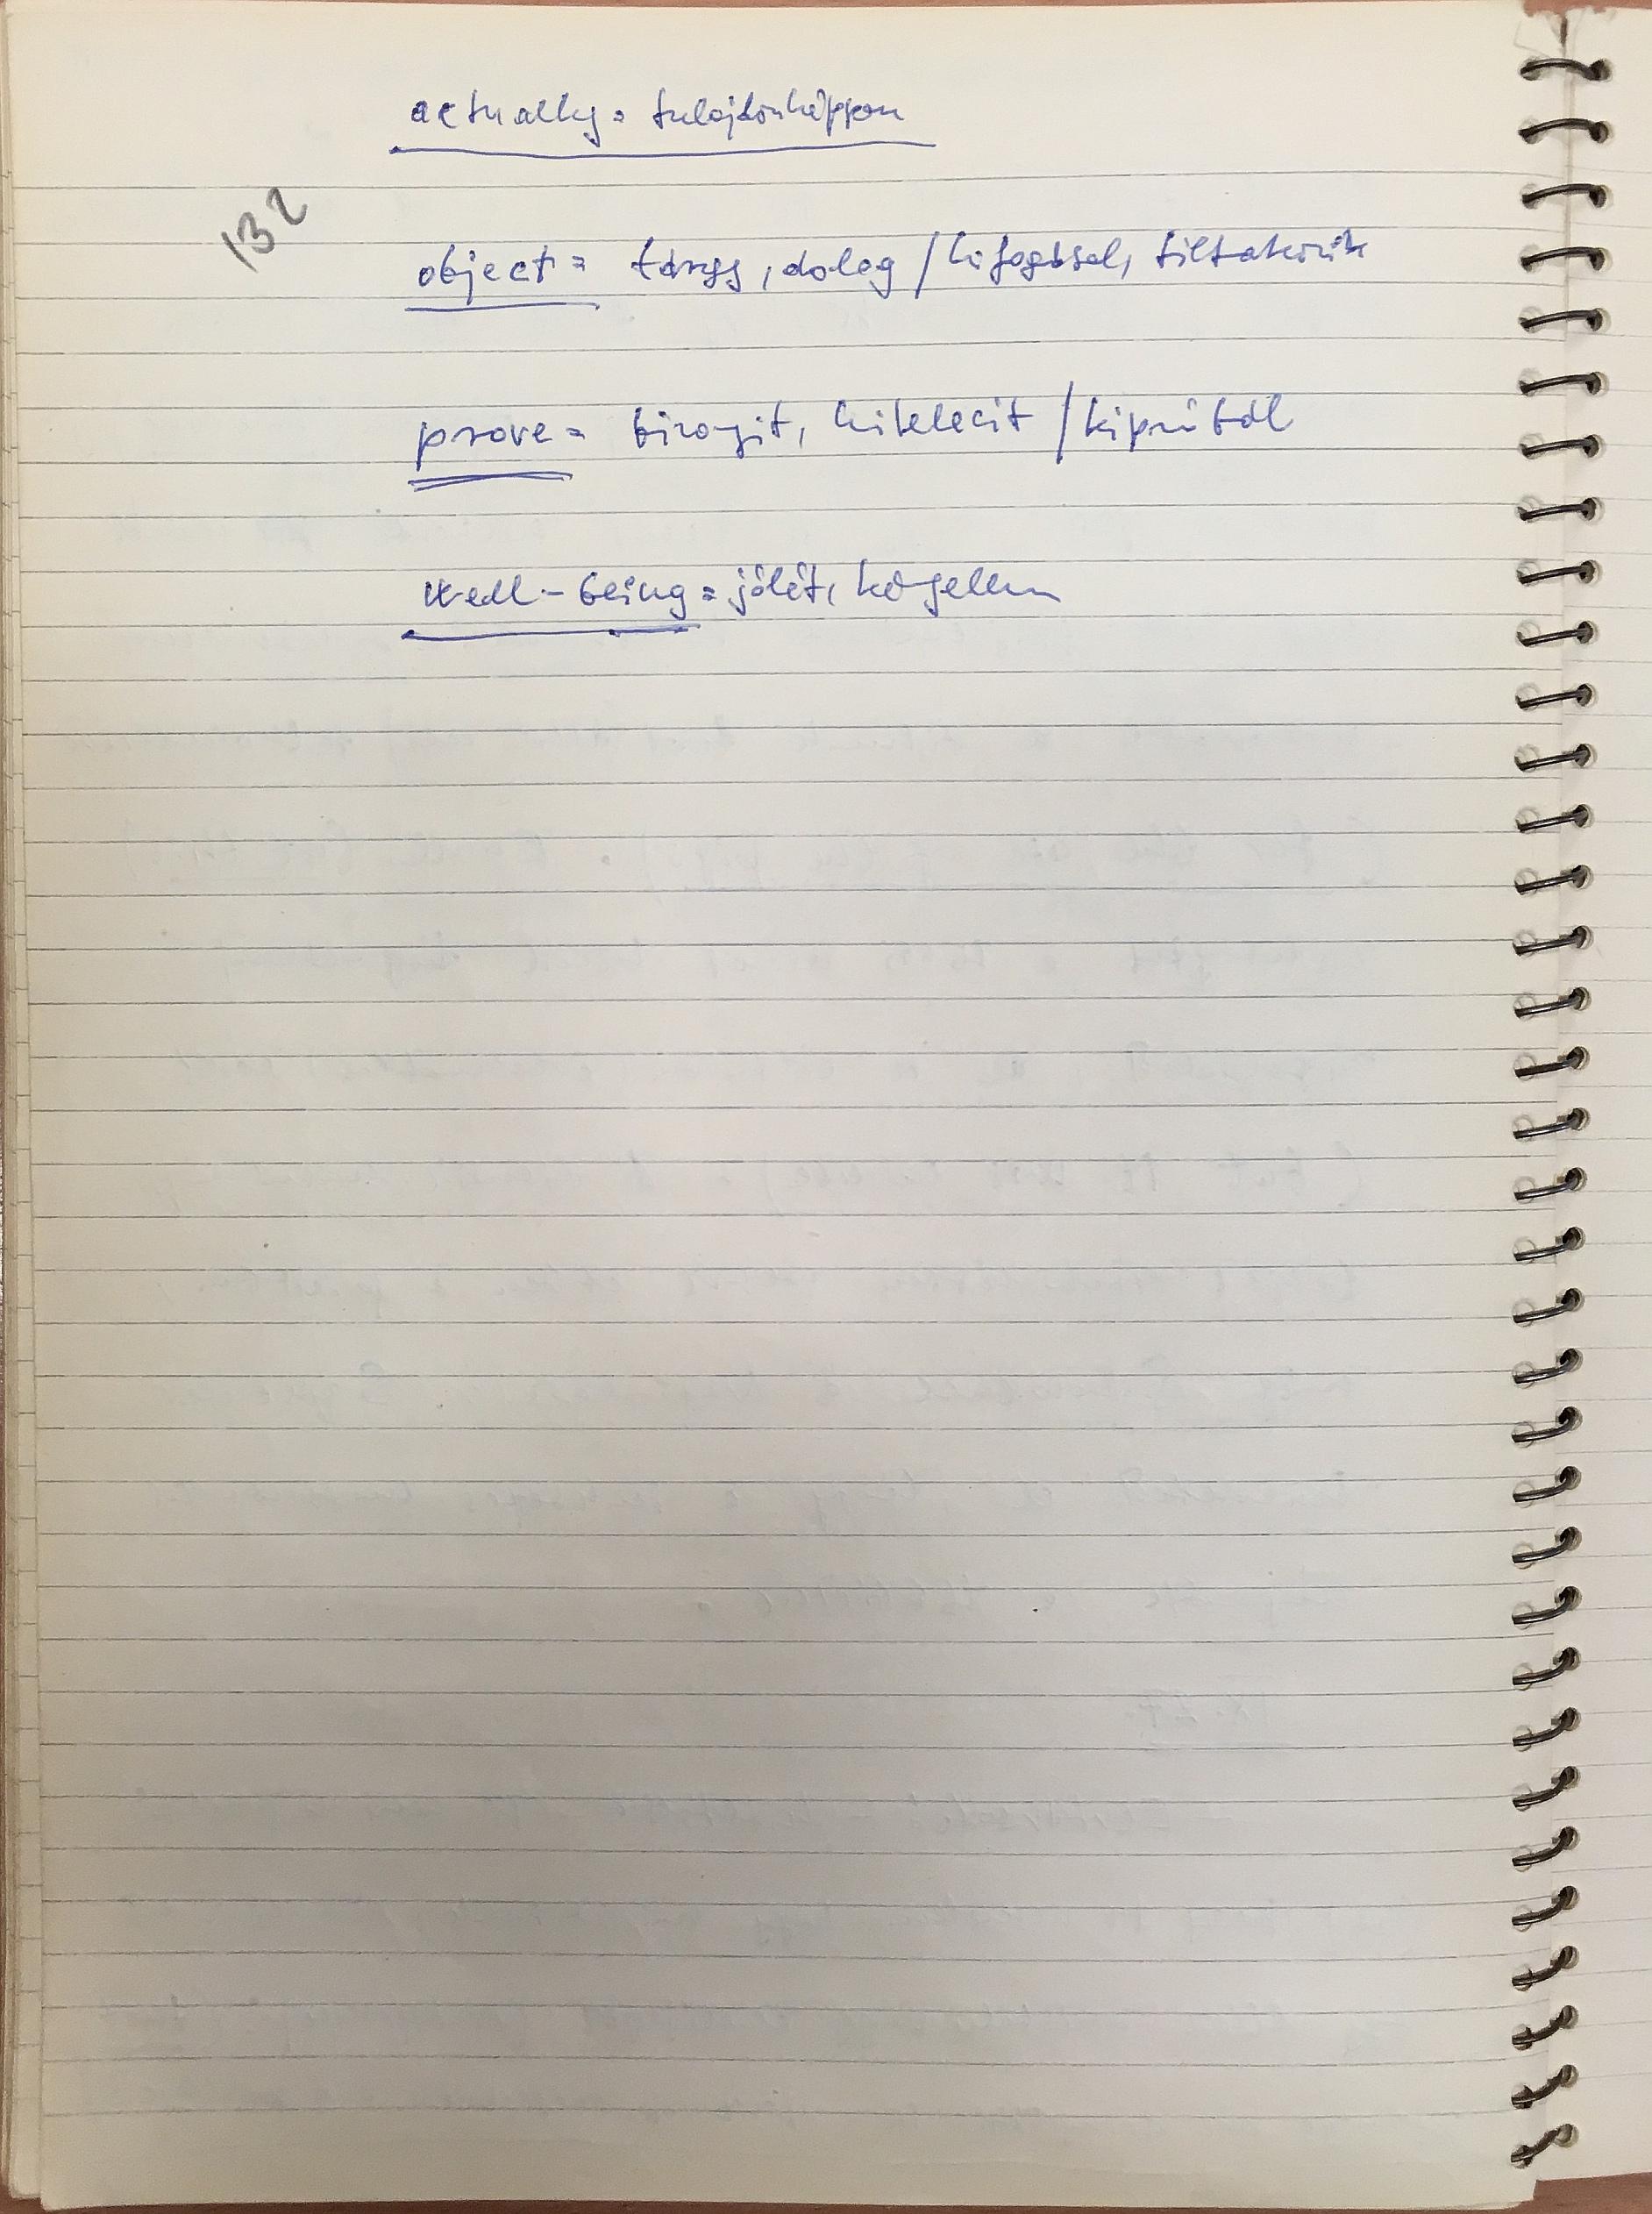 actually = tulajdonképpen
132
object = tárgy, dolog / kifogásol, tiltakozik
prove = bizonyít, hitelesít / kipróbál
well-being = jólét, kényelem